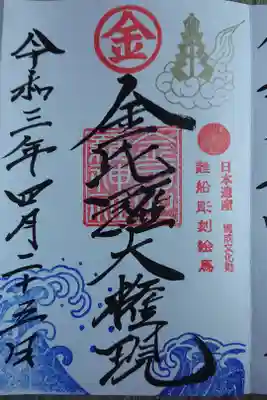 金
日本遺産 構成文化財
難船彫刻絵馬
金比羅大権現
令和三年四月二十五日